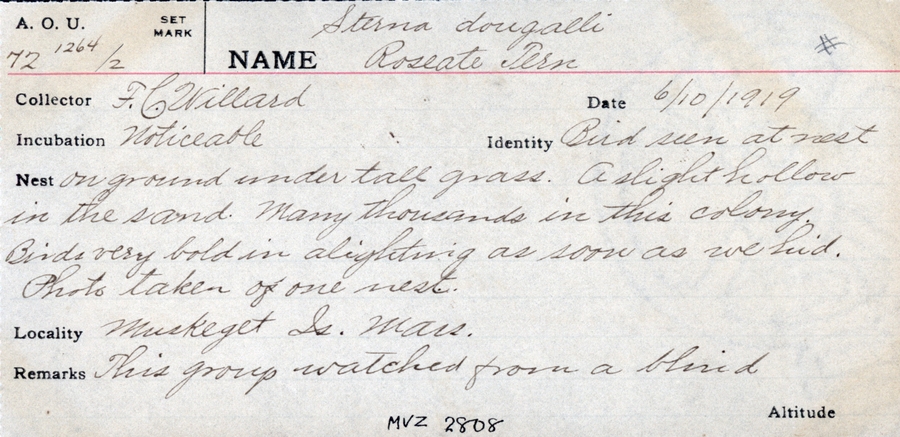 A. O. U. SET MARK Sterna dougalli
72 1264/2 NAME Roseate Tern #
Collector F. C. Willard Date 6/10/1919
Incubation Noticeable Identity Bird seen at nest
Nest on ground under tall grass. A slight hollow
in the sand. Many thousands in this colony.
Birds very bold in alighting as soon as we hid.
Photo taken of one nest.
Locality Muskeget Is. Mass.
Remarks This group watched from a blind
Altitude
MVZ 2808